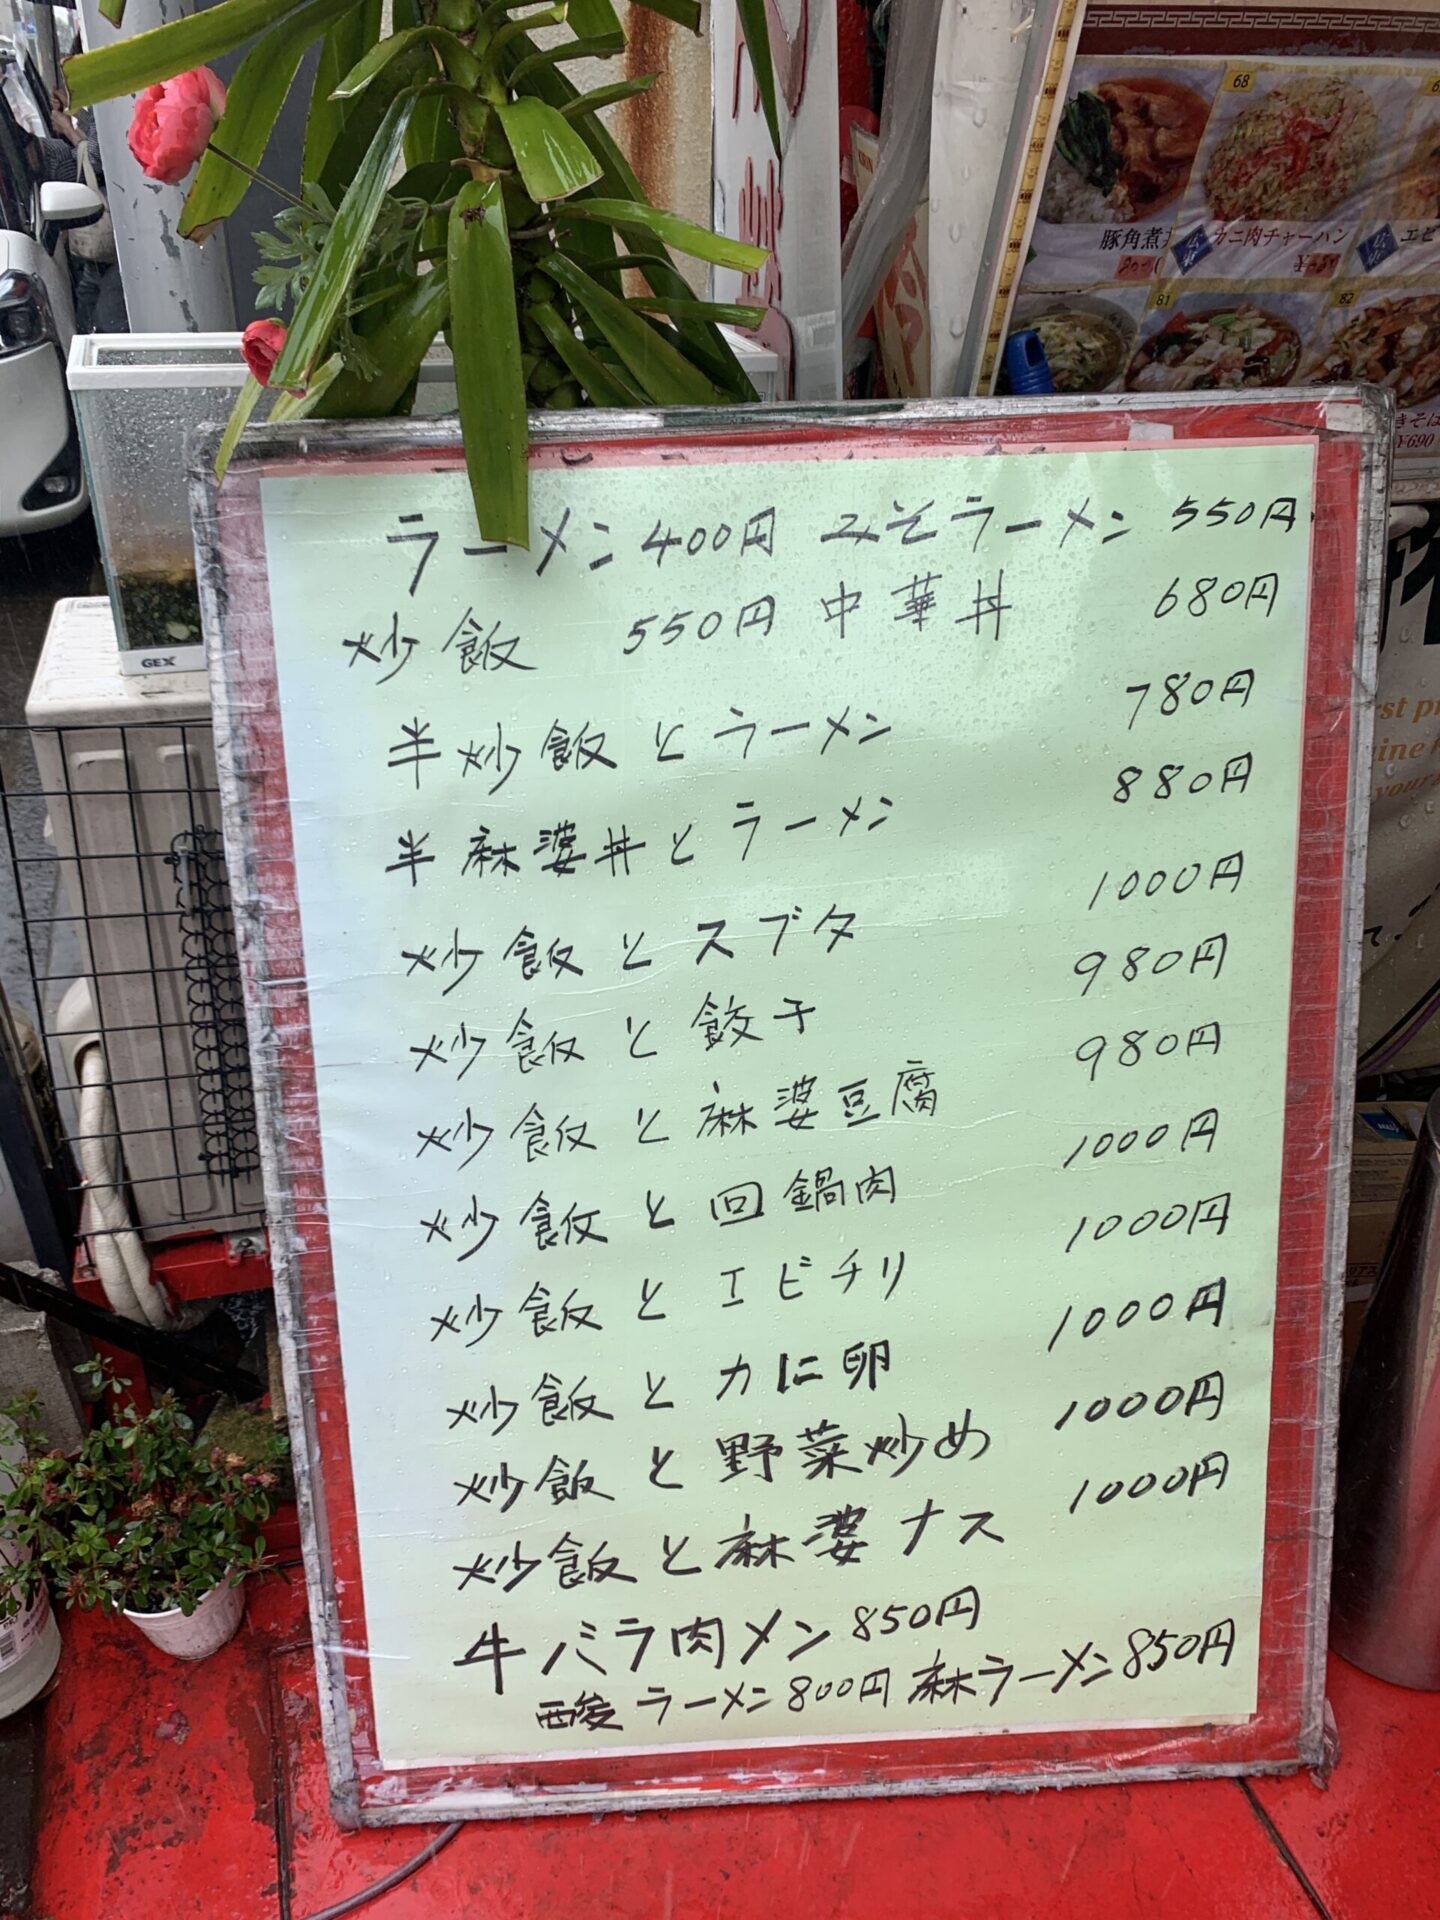 豚角煮丼
68
カニ肉チャーハン
エビ
81
82
きそば
¥690
GEX
ラーメン 400円 みそラーメン 550円
炒飯 550円 中華丼 680円
半炒飯とラーメン 780円
半麻婆丼とラーメン 880円
炒飯とスブタ 1000円
炒飯と餃子 980円
炒飯と麻婆豆腐 980円
炒飯と回鍋肉 1000円
炒飯とエビチリ 1000円
炒飯とカに卵 1000円
炒飯と野菜炒め 1000円
炒飯と麻婆ナス 1000円
牛バラ肉メン 850円
ラーメン 800円 麻ラーメン 850円